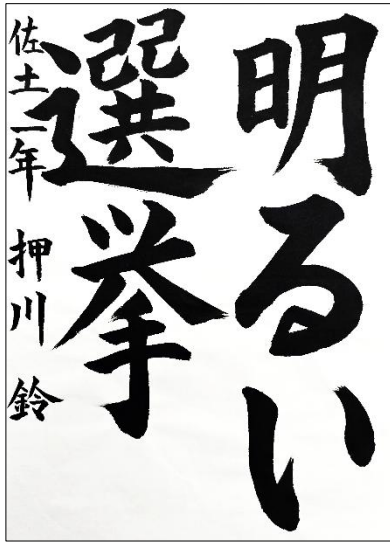 明るい
選挙
佐土二年 押川 鈴